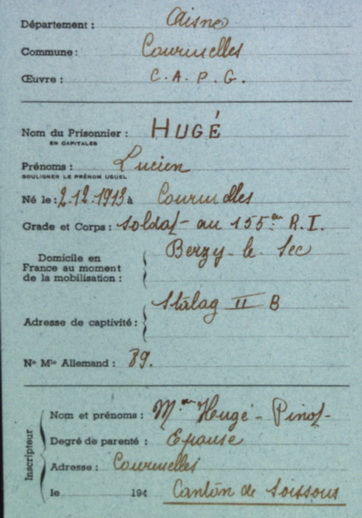 Département : Aisne
Commune : Courmelles
Œuvre : C.A.P.G.
Nom du Prisonnier : HUGÉ
EN CAPITALES
Prénoms : Lucien
SOULIGNER LE PRÉNOM USUEL
Né le : 2.12.1913 à Courmelles
Grade et Corps : soldat au 155e R.I.
Domicile en France au moment de la mobilisation : Berzy-le-Sec
Adresse de captivité : Stalag II B
No Mle Allemand : 89.
Inscripteur
Nom et prénoms : Mme Hugé - Pinot-
Degré de parenté : Epouse
Adresse : Courmelles
le 194 Canton de Soissons